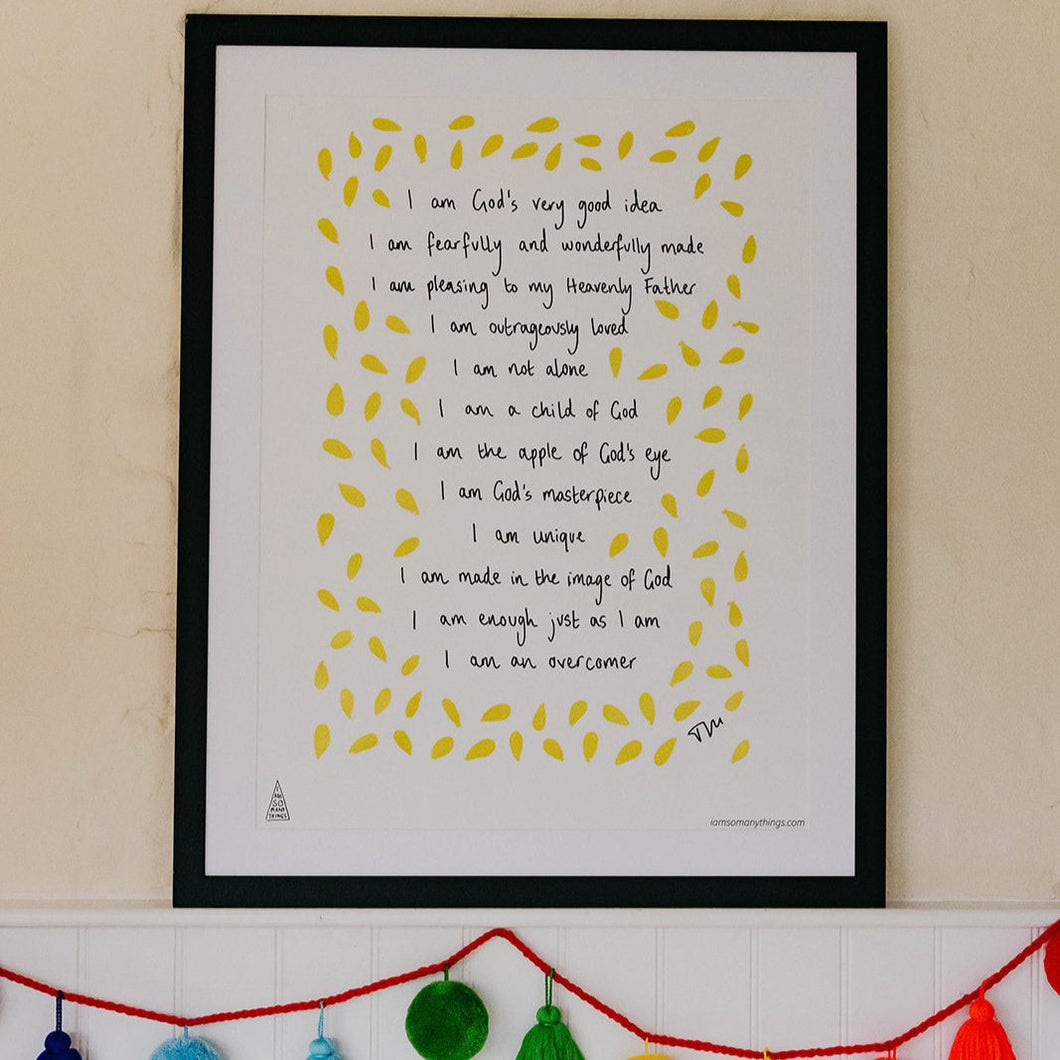 I am God's very good idea
I am fearfully and wonderfully made
I am pleasing to my Heavenly Father
I am outrageously loved
I am not alone
I am a child of God
I am the apple of God's eye
I am God's masterpiece
I am unique
I am made in the image of God
I am enough just as I am
I am an overcomer
I
AM
SO
MANY
THINGS
iamsomanythings.com